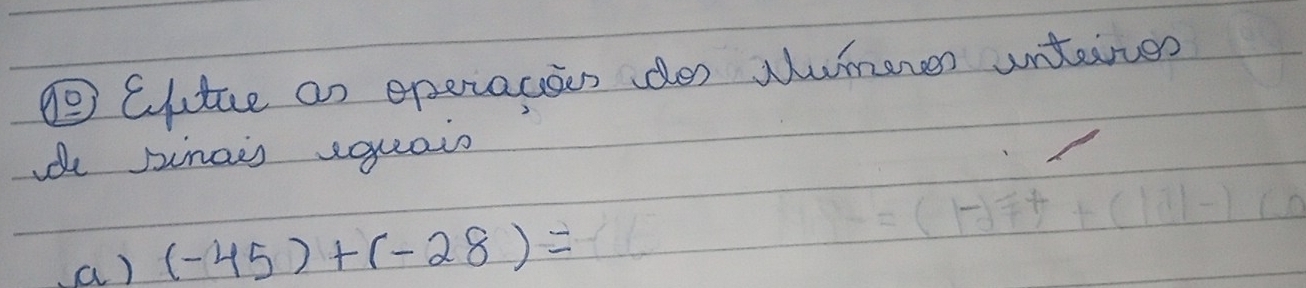 1º) Efetue as operações dos Números inteiros
de sinais iguais
a) (-45)+(-28)=